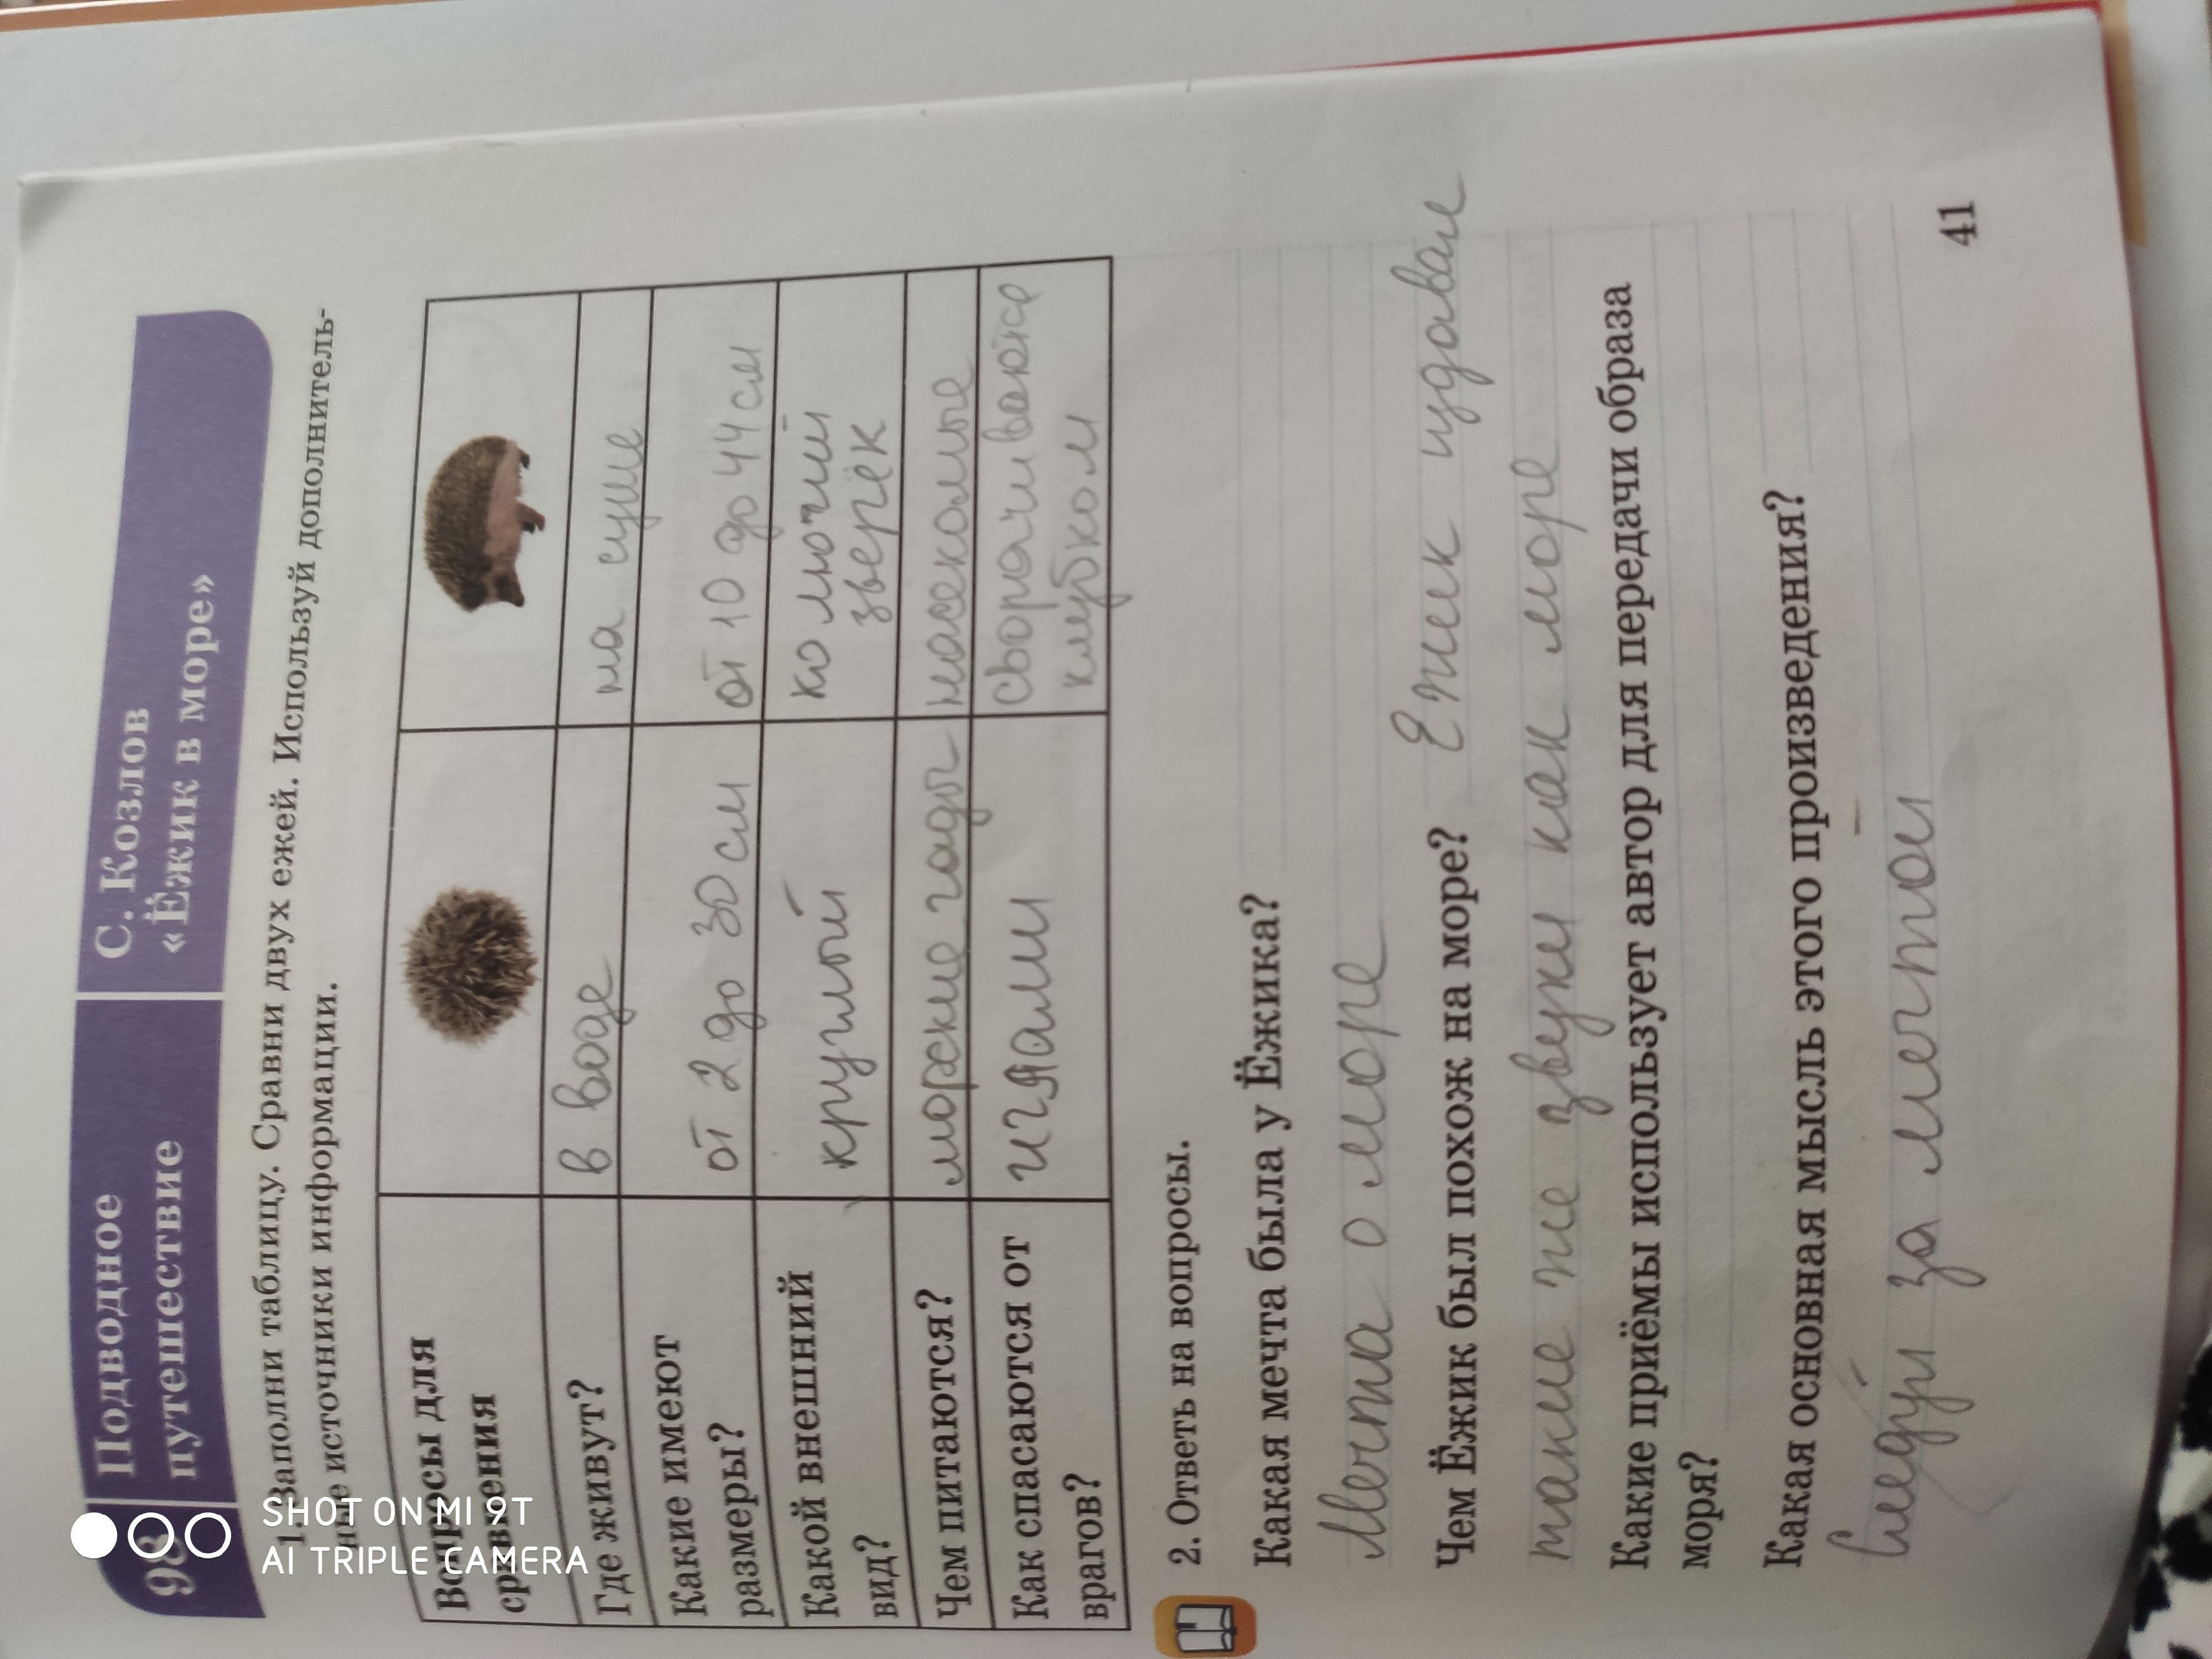 98
Подводное
путешествие
С. Козлов
«Ёжик в море»
1. Заполни таблицу. Сравни двух ежей. Используй дополнитель-
ные источники информации.
Вопросы для
сравнения
Где живут?
в воде
на суше
Какие имеют
размеры?
от 2 до 30 см
от 10 до 44 см
Какой внешний
вид?
круглый
колючий
зверёк
Чем питаются?
морские гады
насекомые
Как спасаются от
врагов?
иглами
сворачиваются
клубком
2. Ответь на вопросы.
Какая мечта была у Ёжика?
Мечта о море
Чем Ёжик был похож на море? Ежик издавал
такие же звуки как море
Какие приёмы использует автор для передачи образа
моря?
Какая основная мысль этого произведения?
Следуй за мечтой
41
SHOT ON MI 9T
AI TRIPLE CAMERA